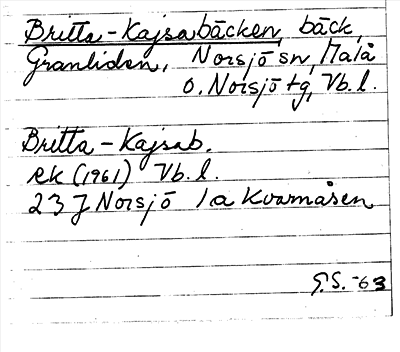 Britta-Kajsabäcken, bäck,
Granliden, Norsjö sn, Malå
o. Norsjö tg, Vb. l.
Britta-Kajsab.
ek (1961) Vb. l.
23 J Norsjö 1a Kvarnåsen
G.S. -63